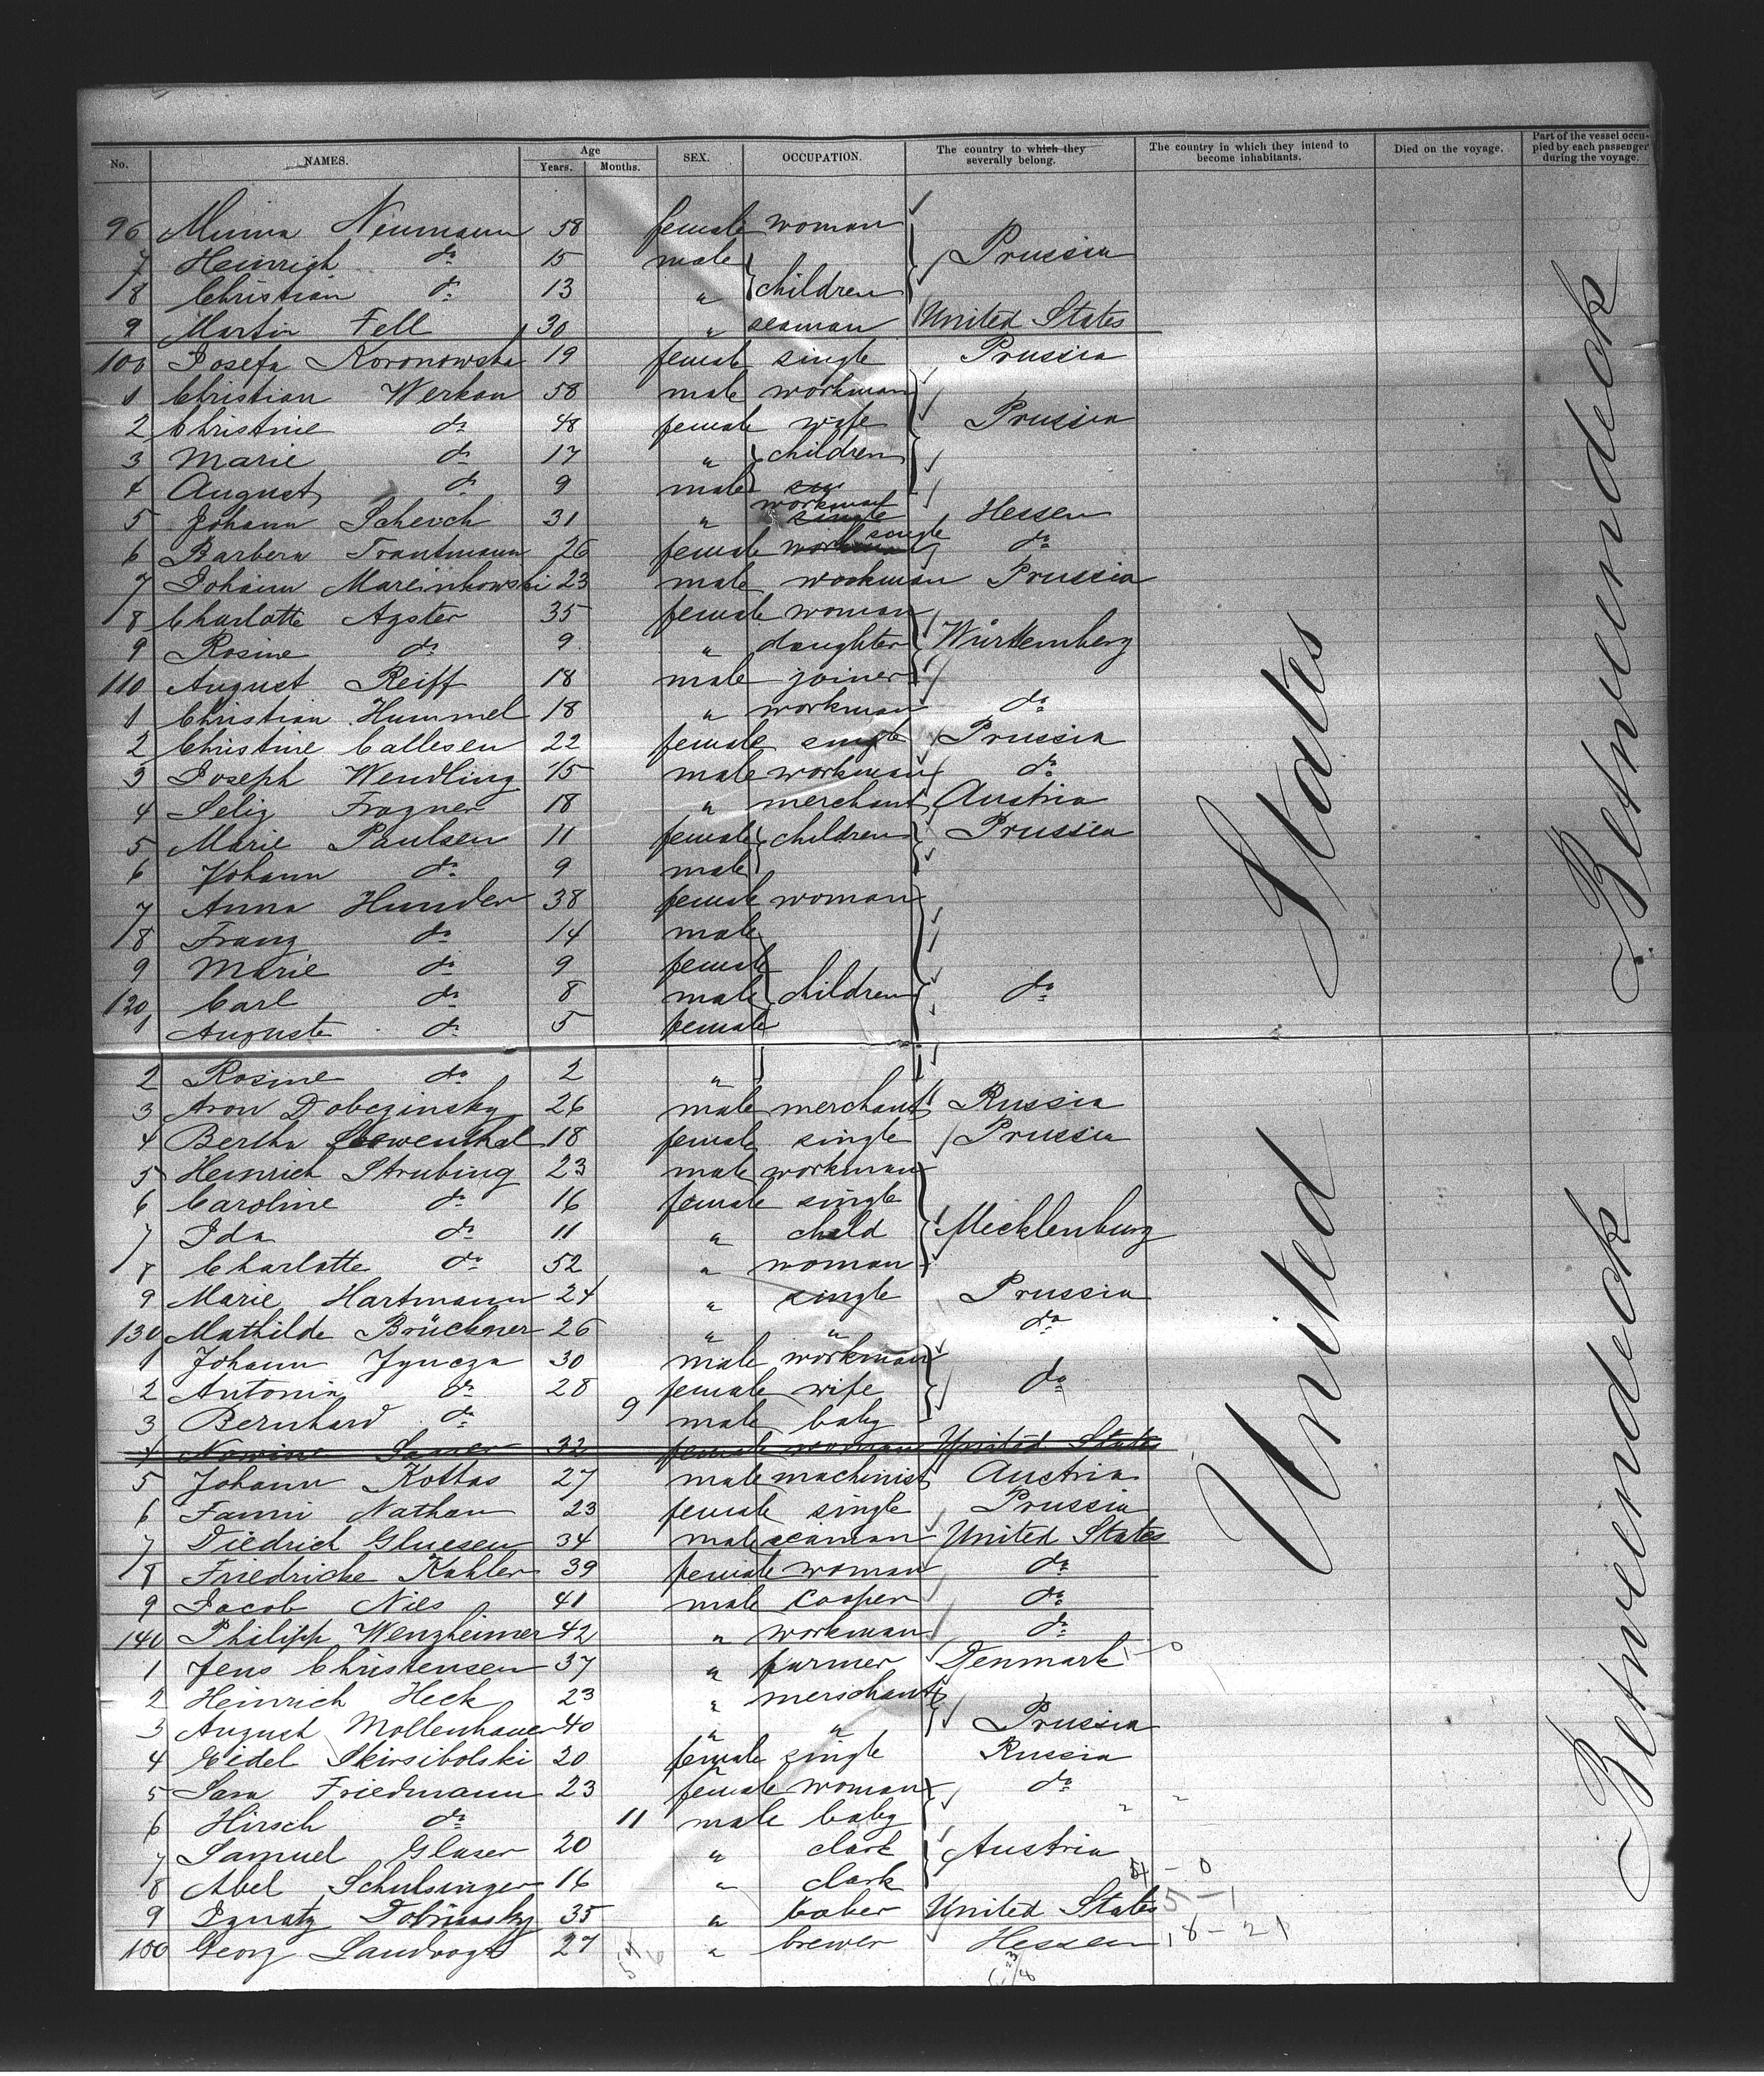 No. NAMES. Age Years. Months. SEX. OCCUPATION. The country to which they severally belong. The country in which they intend to become inhabitants. Died on the voyage. Part of the vessel occupied by each passenger during the voyage.
96 Minna Neumann 58 female woman
7 Heinrich do 15 male Prussia
8 Christian do 13 " children
9 Martin Fell 30 " seaman United States
100 Josefa Koronowska 19 female single Prussia
1 Christian Werkau 58 male workman
2 Christine do 48 female wife Prussia
3 Marie do 17 " children
4 August do 9 male
5 Johann Scherch 31 " workman single Hessen
6 Barbera Trautmann 26 female workman single do
7 Johann Mareinkowski 23 male workman Prussia
8 Charlotte Agster 35 female woman
9 Rosine do 9 " daughter Würtemberg
110 August Reiff 18 male joiner
1 Christian Hummel 18 " workman do
2 Christine Callesen 22 female single Prussia
3 Joseph Wendling 15 male workman do
4 Selig Fragner 18 " merchant Austria
5 Marie Paulsen 11 female children Prussia
6 Johann do 9 male
7 Anna Hunder 38 female woman
8 Franz do 14 male
9 Marie do 9 female
120 Carl do 8 male children do
1 Auguste do 5 female
2 Rosine do 2 "
3 Aron Dobczinsky 26 male merchant Russia
4 Bertha Loewenthal 18 female single Prussia
5 Heinrich Strubing 23 male workman
6 Caroline do 16 female single
7 Ida do 11 " child Mecklenburg
8 Charlotte do 52 " woman
9 Marie Hartmann 24 " single Prussia
130 Mathilde Brückner 26 " " do
1 Johann Jyncza 30 male workman
2 Antonia do 28 female wife do
3 Bernhard do 9 male baby
4 32 female woman United States
5 Johann Kottas 27 male machinist Austria
6 Fanni Nathan 23 female single Prussia
7 Diedrich Gluesen 34 male seaman United States
8 Friedricke Kahler 39 female woman do
9 Jacob Nies 41 male cooper do
140 Philipp Wenzheimer 42 " workman do
1 Jens Christensen 37 " farmer Denmark
2 Heinrich Heck 23 " merschant
3 August Mollenhauer 40 " " Prussia
4 Eidel Skirsibolski 20 female single Russia
5 Sara Friedmann 23 female woman do
6 Hirsch do 11 male baby
7 Samuel Glaser 20 " clark Austria
8 Abel Schulsinger 16 " clark
9 Ignatz 35 " United States 5-1
150 Georg Landvogt 27 " brewer Hessen 18-21
United States
Betweendeck
Betweendeck